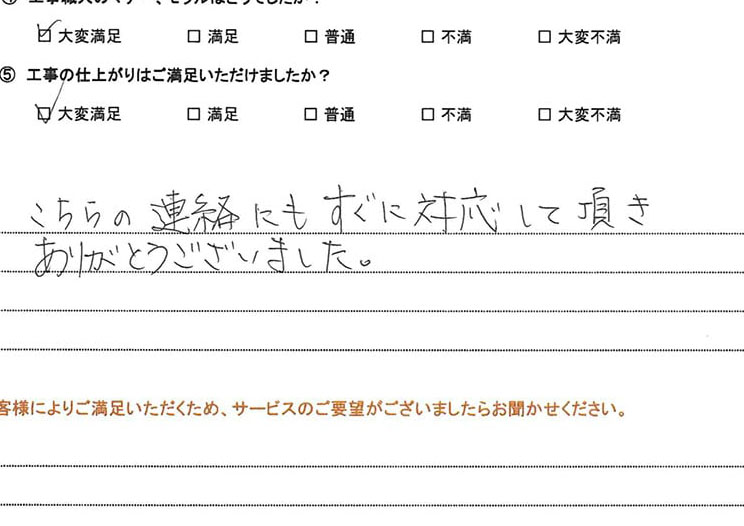 ☑ 大変満足 □ 満足 □ 普通 □ 不満 □ 大変不満
⑤ 工事の仕上がりはご満足いただけましたか？
☑ 大変満足 □ 満足 □ 普通 □ 不満 □ 大変不満
こちらの連絡にもすぐに対応して頂き
ありがとうございました。
客様によりご満足いただくため、サービスのご要望がございましたらお聞かせください。